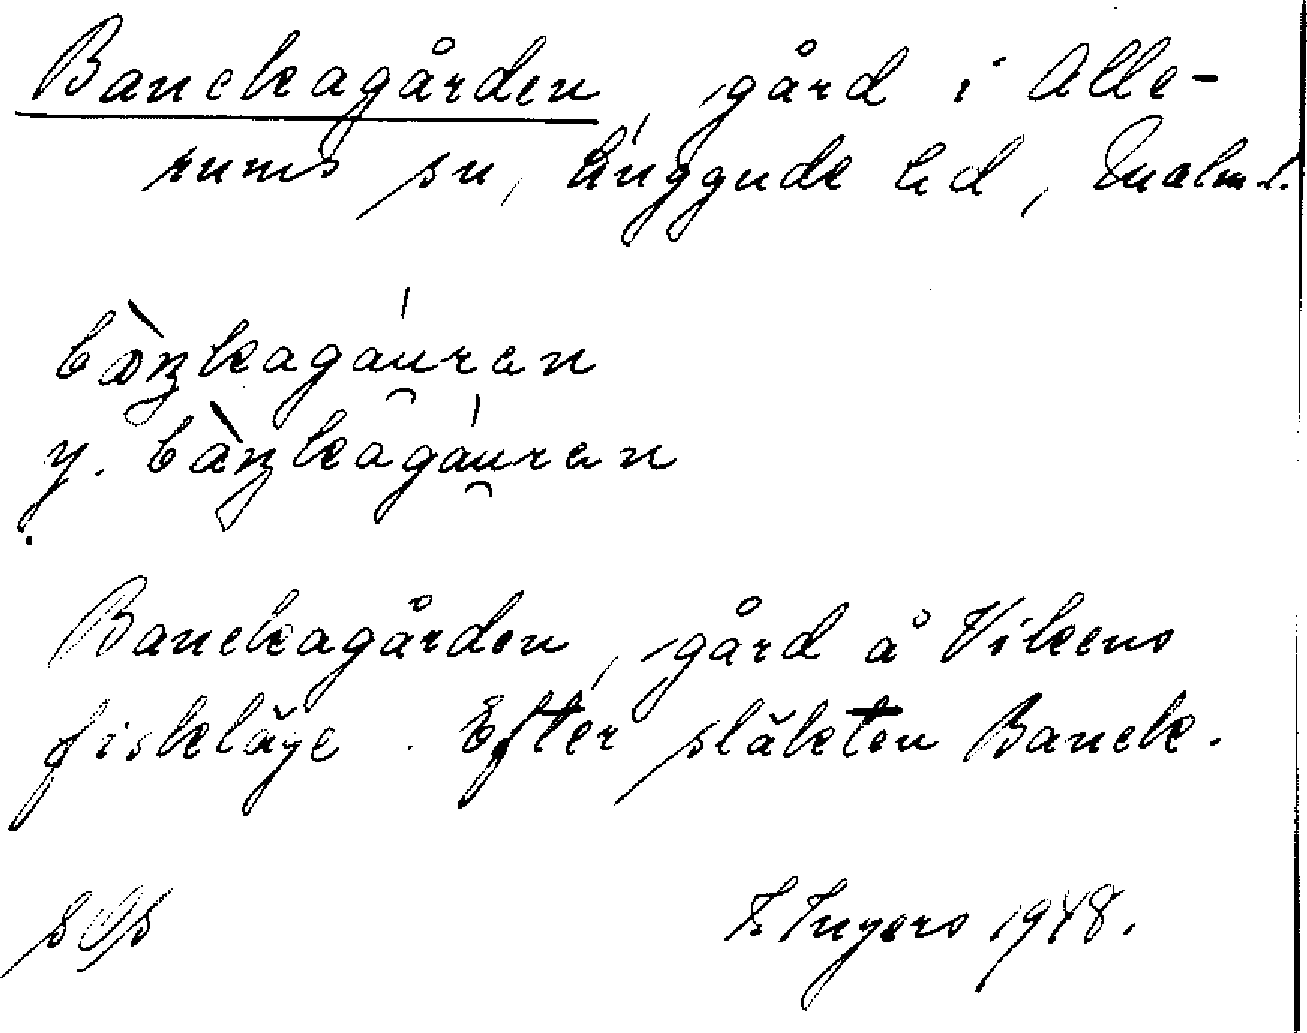 Banckagården, gård i Alle-
rums sn, Luggude hd, Malm. l.
bàŋkagáu̯ran
y. bàŋkagáu̯ran
Banckagården, gård å Vikens
fiskeläge. Efter släkten Banck.
I. Ingers 1948.